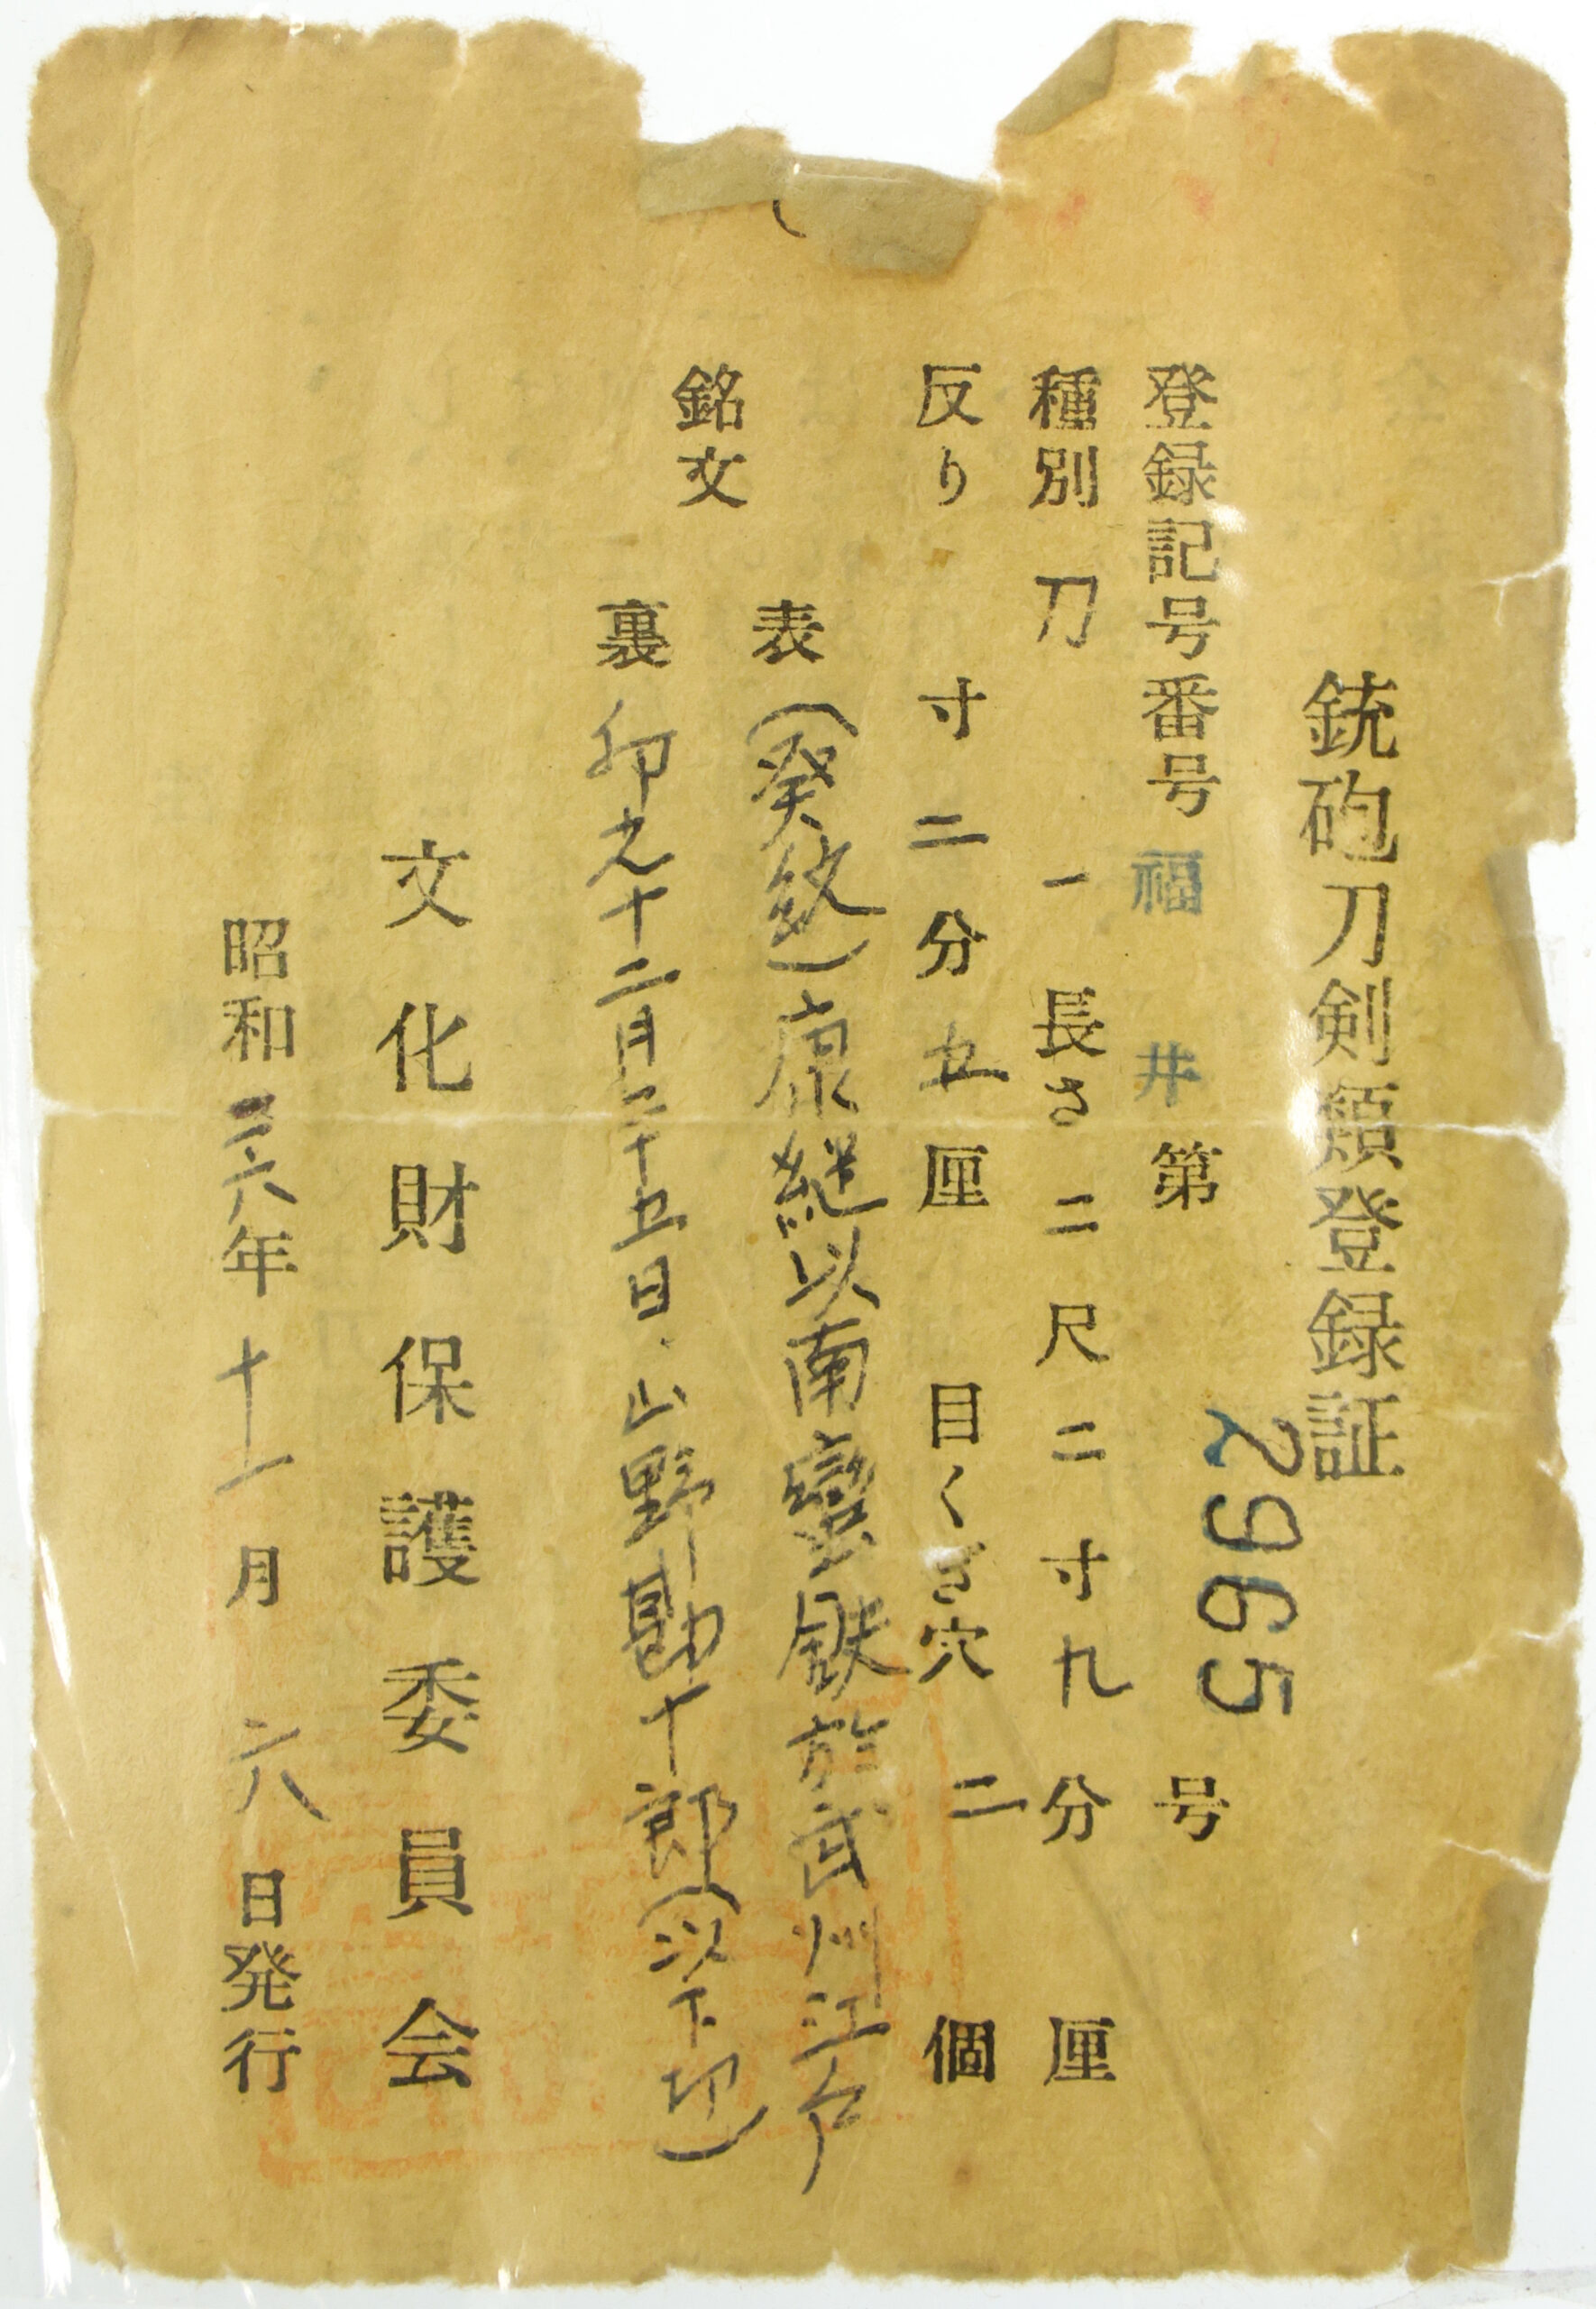 銃砲刀剣類登録証
登録記号番号 福井 第 2965 号
種別 刀 一 長さ 二尺 二寸 九分 厘
反り 寸 二分 五厘 目くぎ穴 二 個
銘文
表 (葵紋)康継以南蛮鉄於武州江戸
裏 卯之十二月二十五日、山野勘十郎(以下切)
文化財保護委員会
昭和三六年 十一月 六日発行